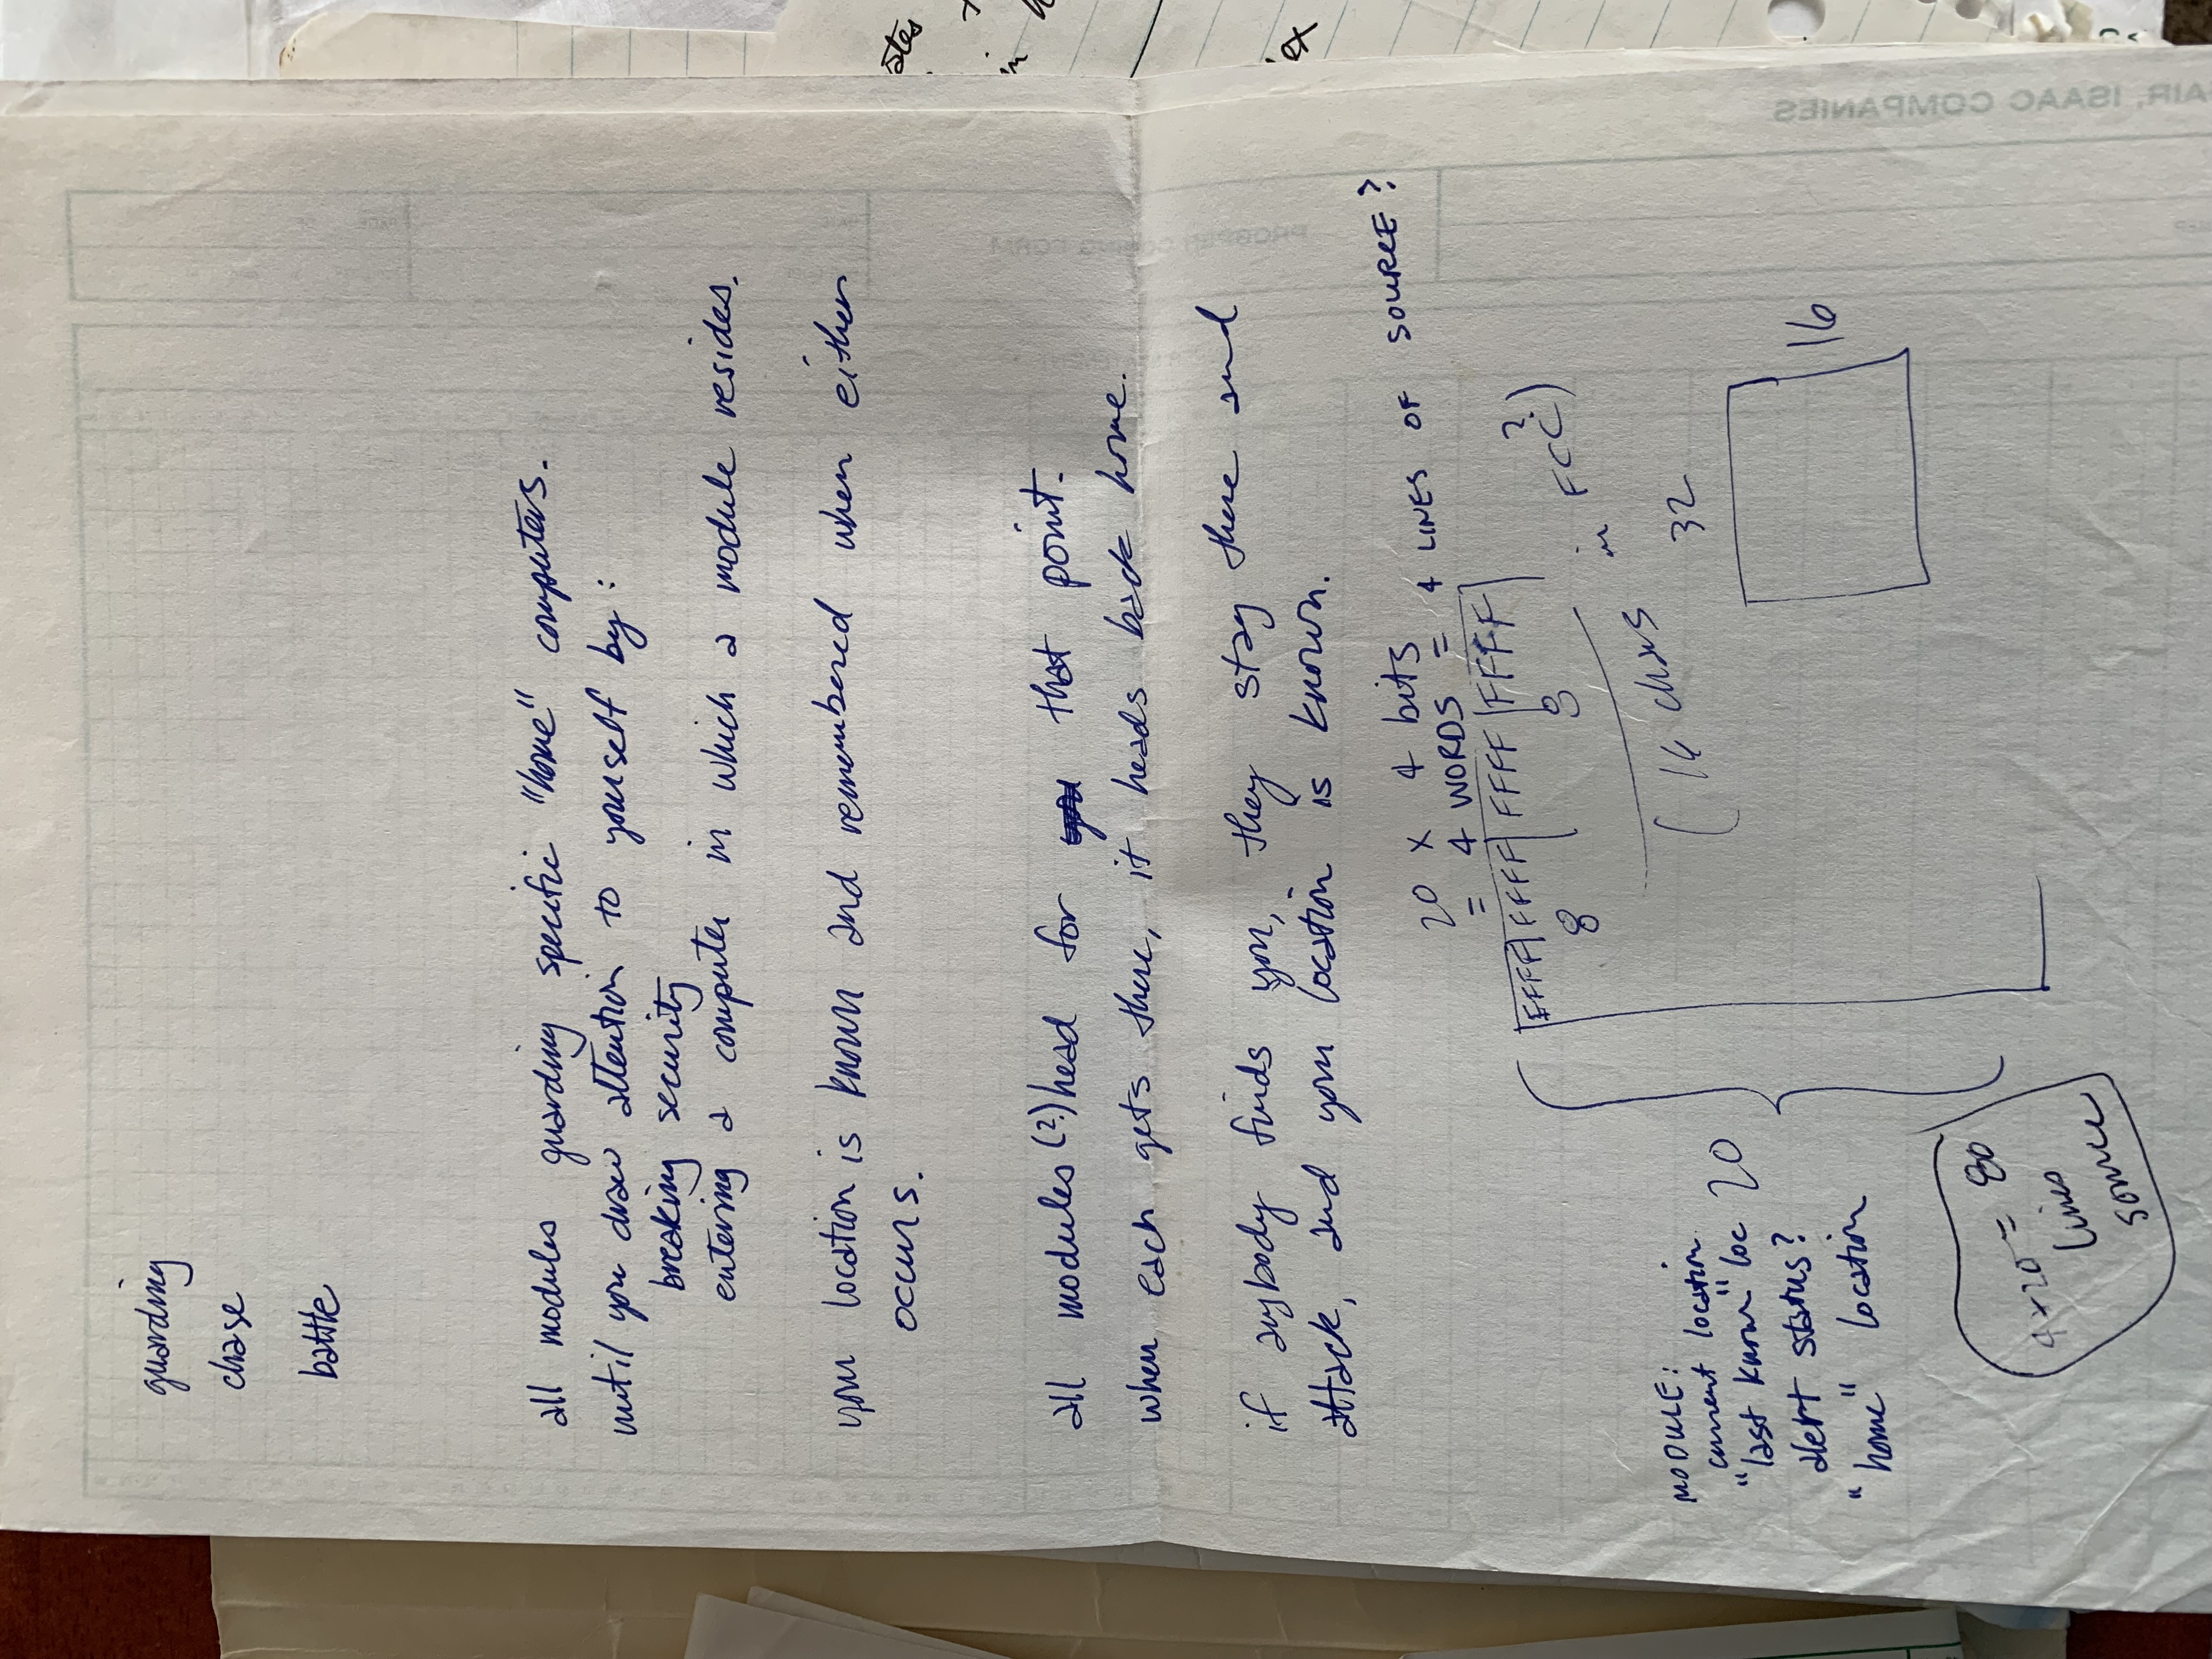 guarding
chase
battle
all modules guarding specific "home" computers.
until you draw attention to yourself by:
breaking security
entering a computer in which a module resides.
your location is known and remembered when either
occurs.
all modules (?) head for you that point.
when each gets there, it heads back home.
if anybody finds you, they stay there and
attack, and your location is known.
20 x 4 bits
= 4 WORDS = 4 LINES OF SOURCE?
FFFF FFFF FFFF FFFF
8 8
(16 chars in FCC?)
32
16
MODULE:
current location
"last known" loc
alert status?
"home" location
20
4 x 20 = 80
lines
source
ISAAC COMPANIES
ates
in
ex